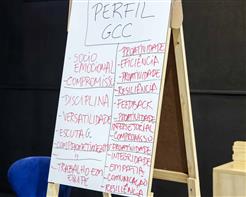 PERFIL
GCC
- SOCIO
EMOCIONAL
- COMPROMISSO
- DISCIPLINA
- VERSATILIDADE
- ESCUTA G.
- COMPROMETIMENTO
"
- TRABALHO EM
EQUIPE
- PROATIVIDADE
- EFICIÊNCIA
- PROATIVIDADE
- RESILIÊNCIA
- FEEDBACK
- PROATIVIDADE
- COMPROMISSO
- PROATIVIDADE
- EMPATIA
- COMUNICAÇÃO
- RESILIÊNCIA